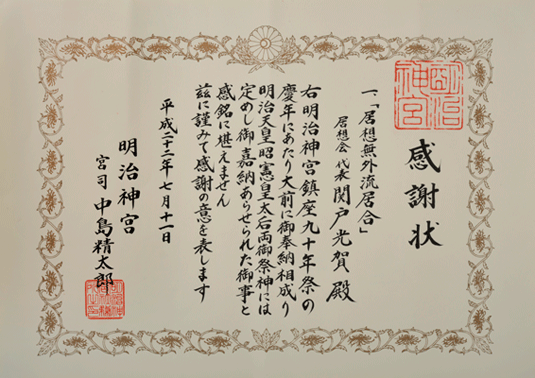 明治神宮
感謝状
一、「居想無外流居合」
居想会 代表 関戸光賀 殿
右明治神宮鎮座九十年祭の
慶年にあたり大前に御奉納相成り
明治天皇昭憲皇太后両御祭神には
定めし御嘉納あらせられた御事と
感銘に堪えません
茲に謹みて感謝の意を表します
平成二十二年七月十一日
明治神宮
宮司 中島精太郎